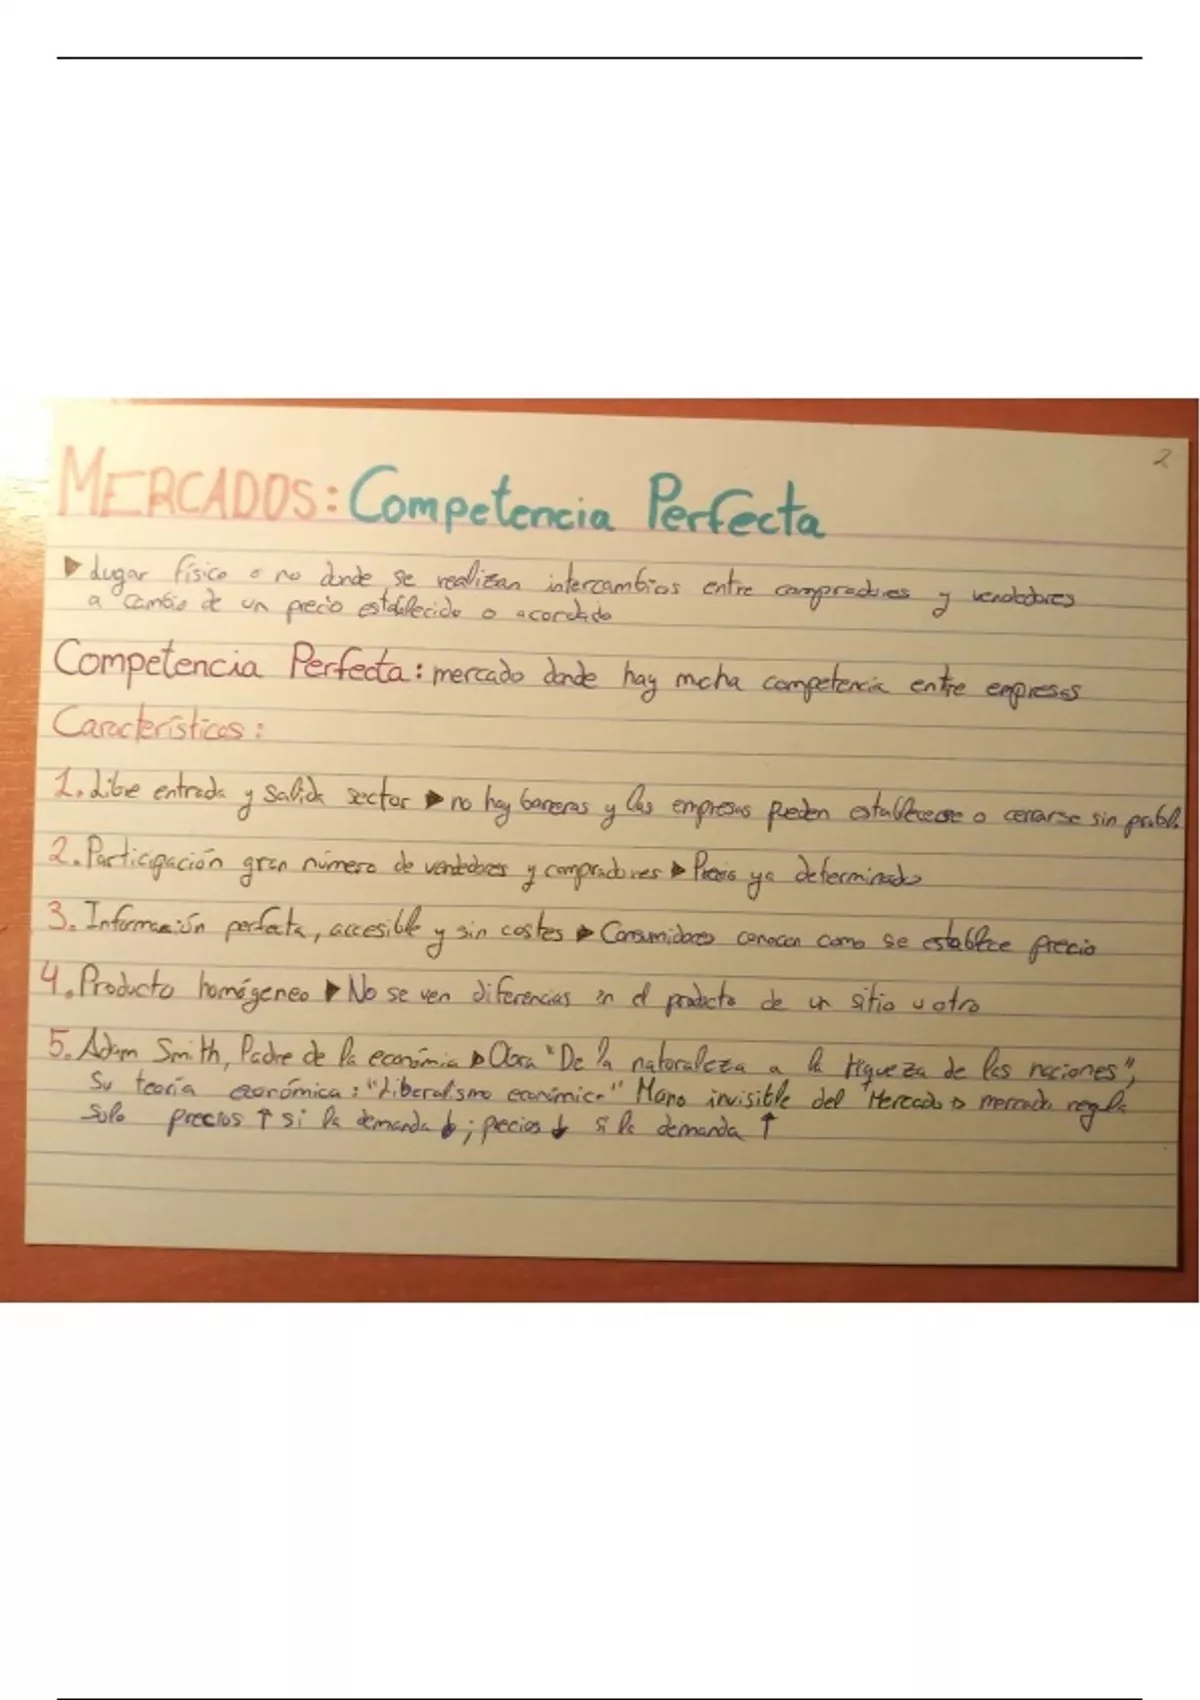 2
MERCADOS: Competencia Perfecta
▶ Lugar físico o no donde se realizan intercambios entre compradores y vendedores
a cambio de un precio establecido o acordado
Competencia Perfecta: mercado donde hay mcha competencia entre empresas
Características:
1. Libre entrada y salida sector ▶ no hay barreras y las empresas pueden establecerse o cerrarse sin probl.
2. Participación gran número de vendedores y compradores ▶ Precio ya determinado
3. Información perfecta, accesible y sin costes ▶ Consumidores conocen como se establece precio
4. Producto homógeneo ▶ No se ven diferencias en el producto de un sitio u otro
5. Adam Smith, Padre de la económia ▶ Obra "De la naturaleza a la riqueza de las naciones",
Su teoría económica: "Liberalismo económico" Mano invisible del Mercado ▷ mercado regula
solo precios ↑ si la demanda ↓; precios ↓ si la demanda ↑